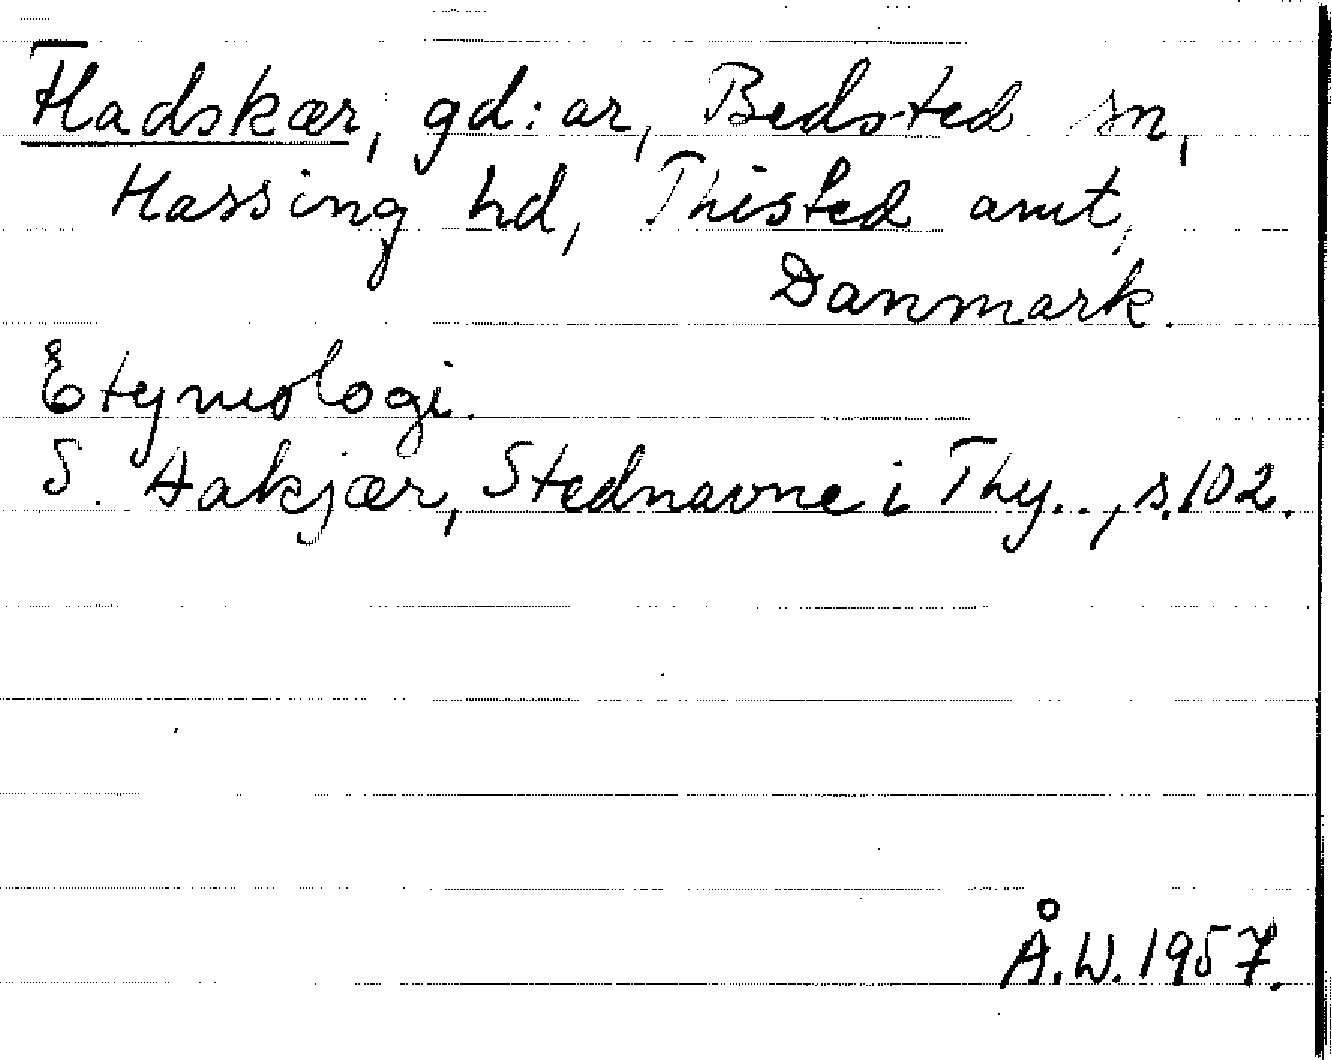 Fladskær, gd:ar, Bedsted sn,
Hassing hd, Thisted amt,
Danmark.
Etymologi.
S. Aakjær, Stednavne i Thy.., s. 102.
Å.W. 1957.